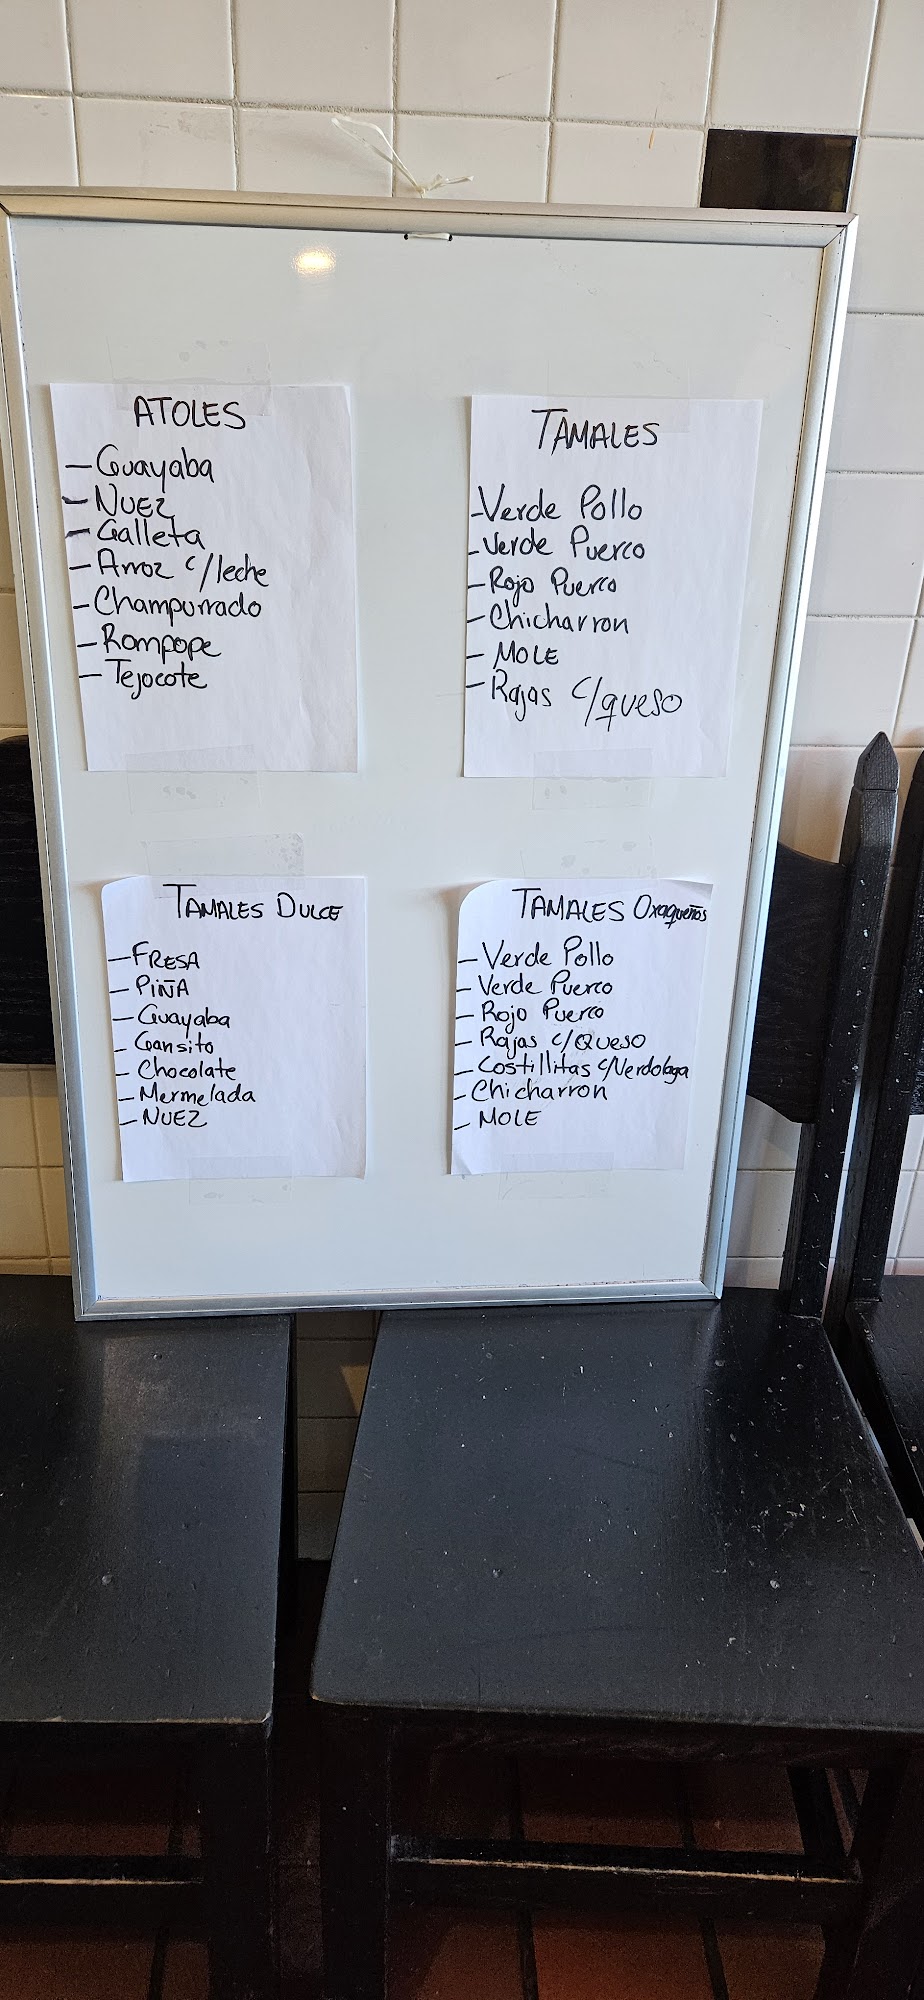 ATOLES
- Guayaba
- NUEZ
- Galleta
- Arroz c/leche
- Champurrado
- Rompope
- Tejocote
TAMALES
- Verde Pollo
- Verde Puerco
- Rojo Puerco
- Chicharron
- MOLE
- Rajas c/queso
TAMALES DULCE
- FRESA
- PIÑA
- Guayaba
- Gansito
- Chocolate
- Mermelada
- NUEZ
TAMALES Oxaqueños
- Verde Pollo
- Verde Puerco
- Rojo Puerco
- Rajas c/QUESO
- Costillitas c/Verdolaga
- Chicharron
- MOLE